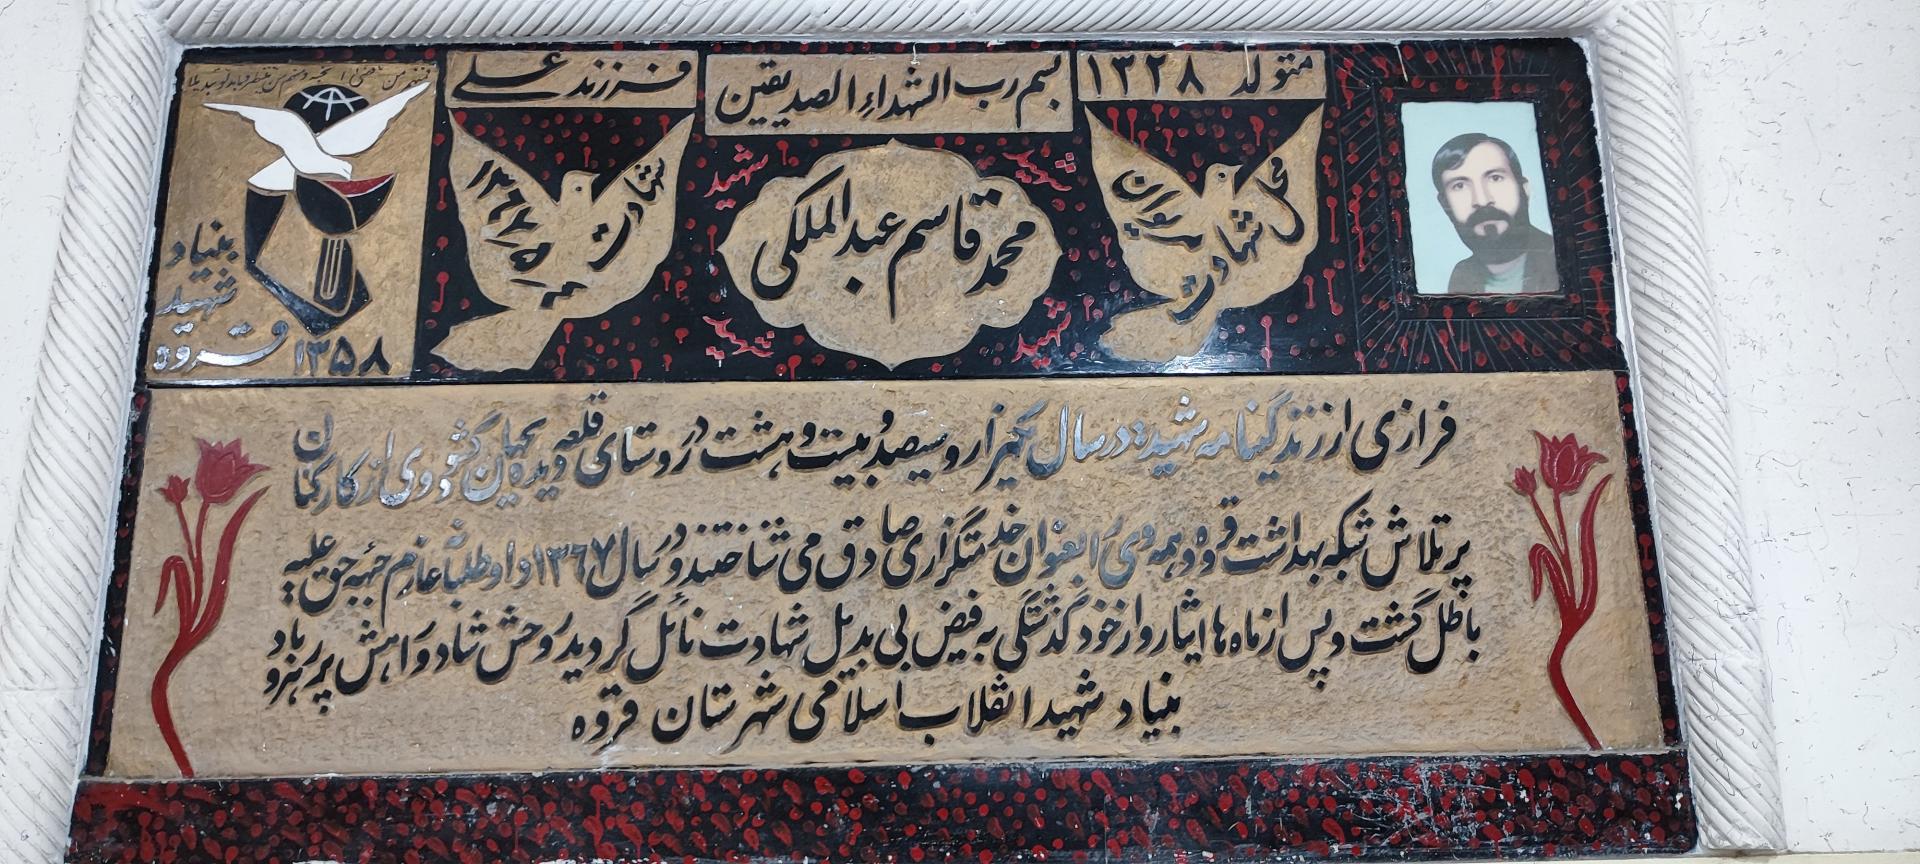 متولد ۱۳۲۸
بسم رب الشهداء الصدیقین
فرزند علی
محل شهادت
شهید
شهید
محمد قاسم عبدالملکی
شهید
شهید
شهادت
بنیاد
شهید
قروه
۱۳۵۸
فرازی از زندگینامه شهید: در سال یکهزار و سیصد و بیست و هشت در روستای قلعه دیده بجهان گشود وی از کارکنان
پر تلاش شبکه بهداشت قروه و همه وی را بعنوان خدمتگزاری صادق می شناختند و در سال ۱۳۶۷ داوطلبانه عازم جبهه حق علیه
باطل گشت و پس از ماه ها ایثار و از خود گذشتگی به فیض بی بدیل شهادت نائل گردید روحش شاد و راهش پر رهرو باد
بنیاد شهید انقلاب اسلامی شهرستان قروه